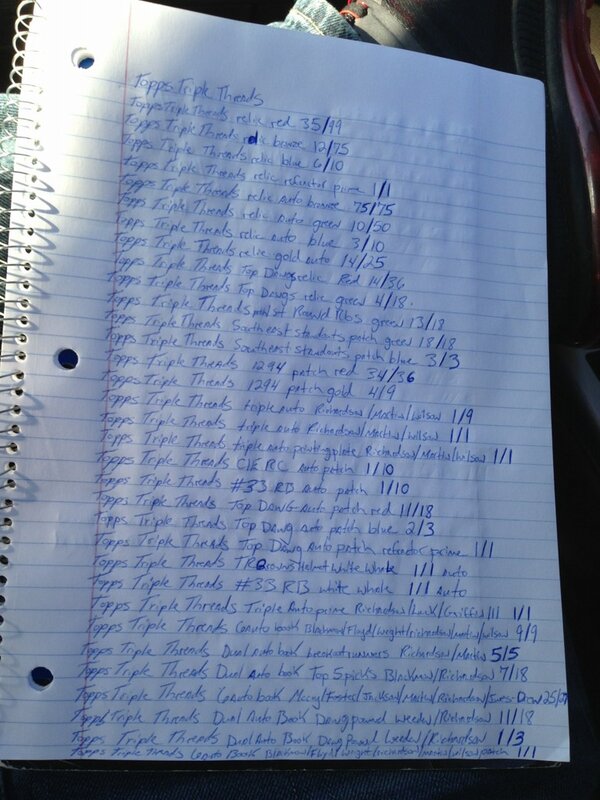 Topps Triple Threads
Topps Triple Threads relic red 35/99
Topps Triple Threads relic bronze 12/75
Topps Triple Threads relic blue 6/10
Topps Triple Threads relic refractor prime 1/1
Topps Triple Threads relic Auto bronze 75/75
Topps Triple Threads relic Auto green 10/50
Topps Triple Threads relic auto blue 3/10
Topps Triple Threads relic gold auto 14/25
Topps Triple Threads Top Dawgs relic Red 14/36
Topps Triple Threads Top Dawgs relic green 4/18
Topps Triple Threads Rbs green 13/18
Topps Triple Threads Southeast standouts patch green 18/18
Topps Triple Threads Southeast standouts patch blue 3/3
Topps Triple Threads 1294 patch red 34/36
Topps Triple Threads 1294 patch gold 4/9
Topps Triple Threads triple auto Richardson/Martin/wilson 1/9
Topps Triple Threads triple auto Richardson/Martin/wilson 1/1
Topps Triple Threads triple auto printing plate Richardson/Martin/wilson 1/1
Topps Triple Threads CLE RC Auto patch 1/10
Topps Triple Threads #33 RB Auto patch 1/10
Topps Triple Threads Top Dawg Auto patch red 11/18
Topps Triple Threads Top Dawg Auto patch blue 2/3
Topps Triple Threads Top Dawg Auto patch refractor prime 1/1
Topps Triple Threads TR Browns Helmet white whale 1/1 Auto
Topps Triple Threads #33 RB white whale 1/1 Auto
Topps Triple Threads Triple Auto prime Richardson/Luck/Griffin III 1/1
Topps Triple Threads 6 auto book Blackmon/Floyd/wright/richardson/martin/wilson 9/9
Topps Triple Threads Dual auto book breakout runners Richardson/Martin 5/5
Topps Triple Threads Dual Auto book Top 5 picks Blackmon/Richardson 7/18
Topps Triple Threads 6 auto book Mccoy/Foster/Jackson/Martin/Richardson/Jones-Drew 25/27
Topps Triple Threads Dual Auto Book Dawg pound weeden/Richardson 11/18
Topps Triple Threads Dual Auto Book Dawg Pound Weeden/Richardson 1/3
Topps Triple Threads 6 auto Book Blackmon/Floyd/wright/richardson/martin/wilson patch 1/1